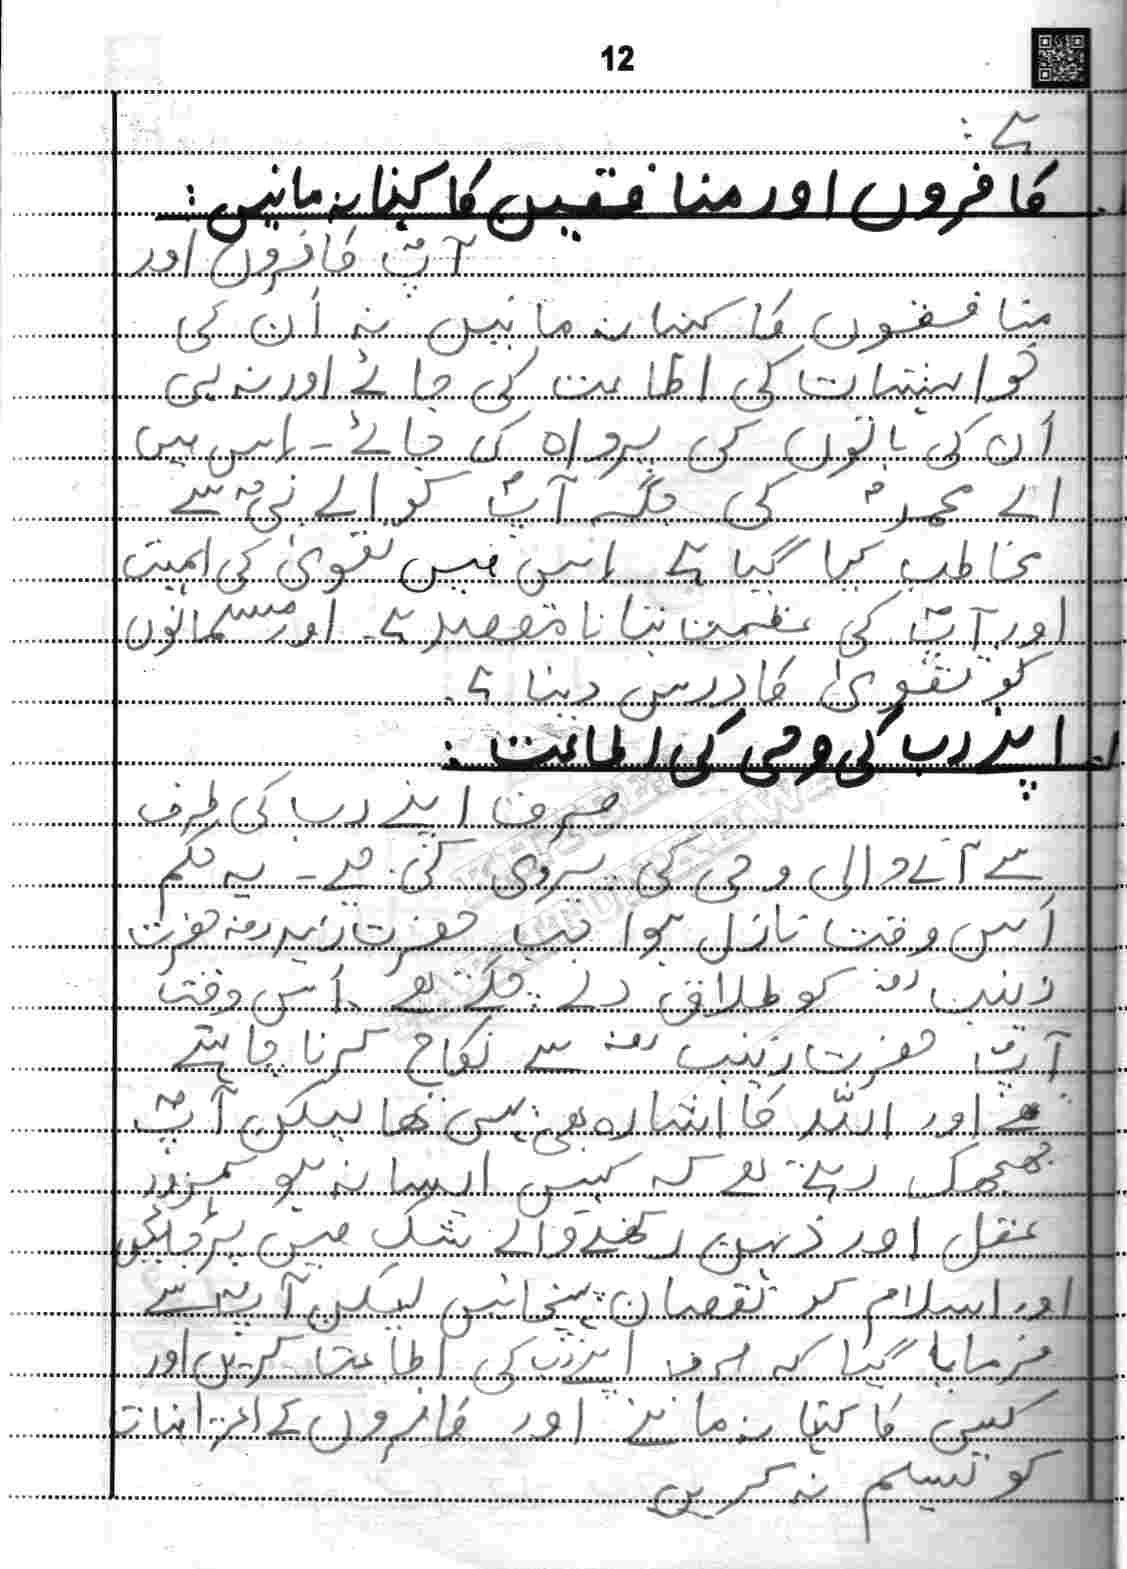 12
ہے:
کافروں اور منافقین کا کہنا نہ مانیں:
آپؐ کافروں اور
منافقوں کا کہنا نہ مانیں نہ اُن کی
خواہشات کی اطاعت کی جائے اور نہ ہی
اُن کی باتوں کی پرواہ کی جائے۔ اس میں
اے محمدؐ کی جگہ آپؐ کو اے نبیؐ سے
مخاطب کیا گیا ہے۔ اس میں تقویٰ کی اہمیت
اور آپؐ کی عظمت بتانا مقصد ہے۔ اور مسلمانوں
کو تقویٰ کا درس دینا ہے۔
اپنے رب کی وحی کی اطاعت:
صرف اپنے رب کی طرف
سے آنے والی وحی کی پیروی کنی ہے۔ یہ حکم
اُس وقت نازل ہوا جب حضرت زیدؓ حضرت
زینبؓ کو طلاق دے چکے تھے۔ اُس وقت
آپؐ حضرت زینبؓ سے نکاح کرنا چاہتے
تھے اور اللہ کا اشارہ بھی یہی تھا لیکن آپؐ
جھجھک رہے تھے کہ کہیں ایسا نہ ہو کمزور
عقل اور ذہن رکھنے والے شک میں پڑ جائیں
اور اسلام کو نقصان پہنچائیں لیکن آپؐ سے
فرمایا گیا کہ صرف اپنے رب کی اطاعت کریں اور
کسی کا کہنا نہ مانے اور کافروں کے اعتراضات
کو تسلیم نہ کریں